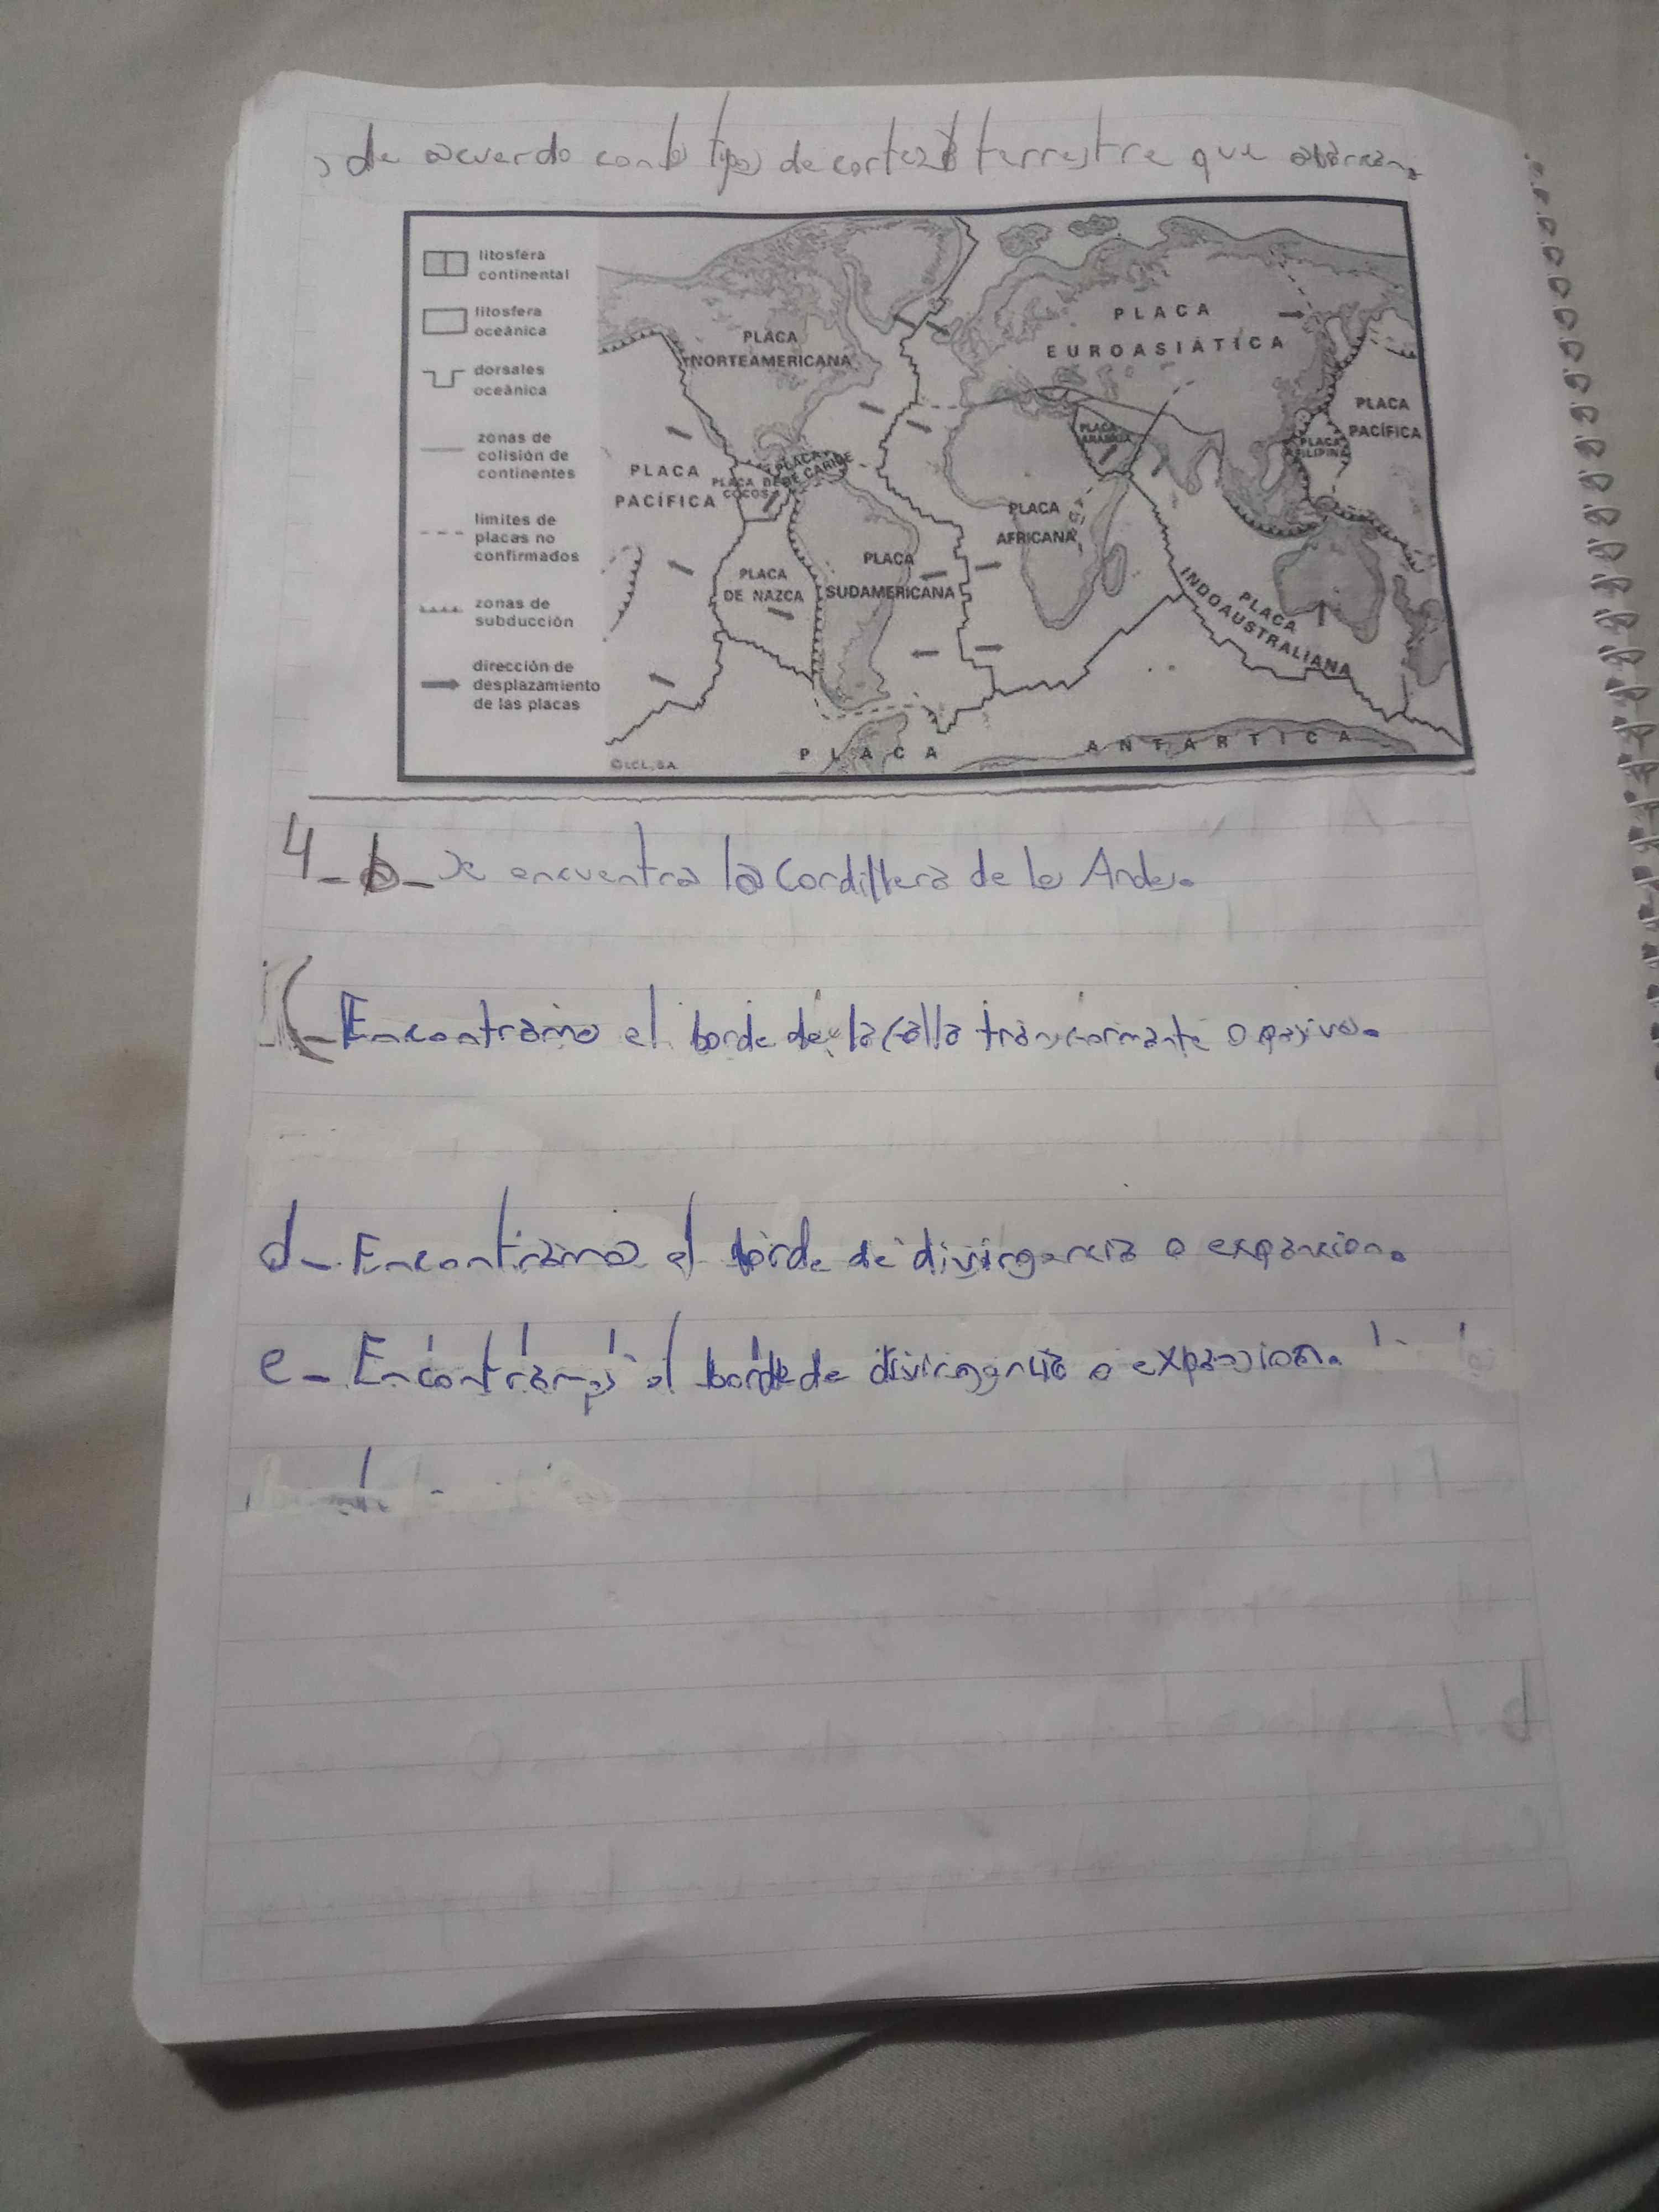 de acuerdo con los tipos de corteza terrestre que abarcan.
litosfera
continental
litosfera
oceánica
dorsales
oceánica
zonas de
colisión de
continentes
límites de
placas no
confirmados
zonas de
subducción
dirección de
desplazamiento
de las placas
PLACA
NORTEAMERICANA
PLACA
EUROASIÁTICA
PLACA
PACÍFICA
PLACA
ARABIGA
PLACA
FILIPINA
PLACA
DE CARIBE
PLACA DE
COCOS
PLACA
PACÍFICA
PLACA
AFRICANA
PLACA
DE NAZCA
PLACA
SUDAMERICANA
PLACA
INDOAUSTRALIANA
PLACA ANTÁRTICA
©LCL, S.A.
4_b_ se encuentra la Cordillera de los Andes.
Encontramos el borde de la falla transformante o pasivo.
d_ Encontramos el borde de divirgencia o expancion.
e_ Encontramos el borde de divirgencia o expassion.